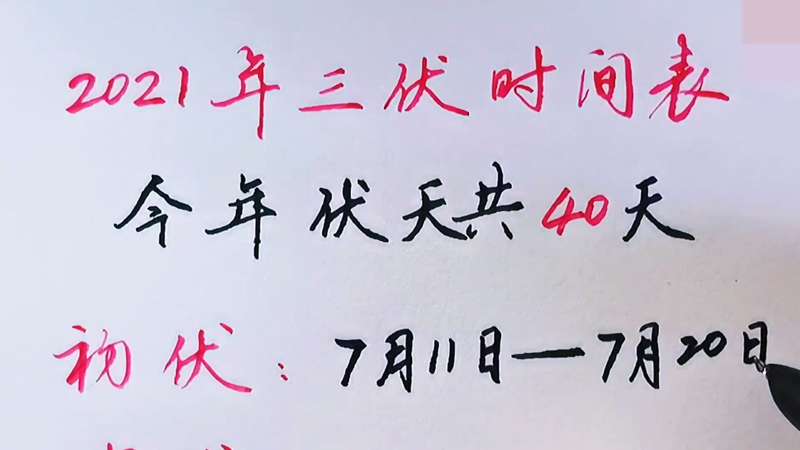 2021年三伏时间表
今年伏天共40天
初伏：7月11日—7月20日